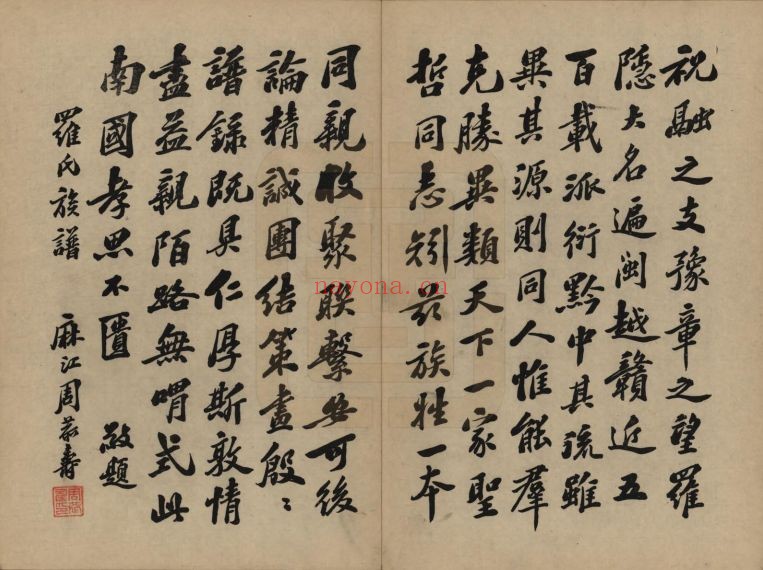 祝融之支豫章之望羅
隱大名遍閩越贛近五
百載派衍黔中其流雖
異其源則同人惟能羣
克勝異類天下一家聖
哲同志矧茲族姓一本
同親收聚聯繫無可後
論精誠團結策畫殷〻
譜錄既具仁厚斯敦情
盡益親陌路無喟式此
南國孝思不匱 敬題
羅氏族譜 麻江周恭壽
nayona.cn